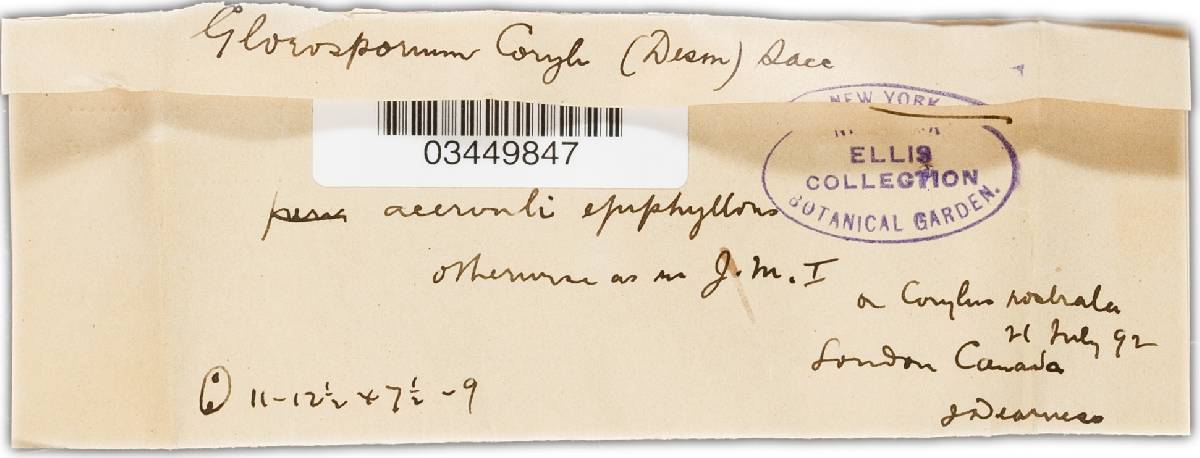 Gloeosporium Coryli (Desm) Sacc
NEW YORK
ELLIS
COLLECTION
BOTANICAL GARDEN.
03449847
acervuli epiphyllous
otherwise as in J.M.I
on Corylus rostrata
21 July 92
London Canada
J Dearness
11-12½ x 7½-9